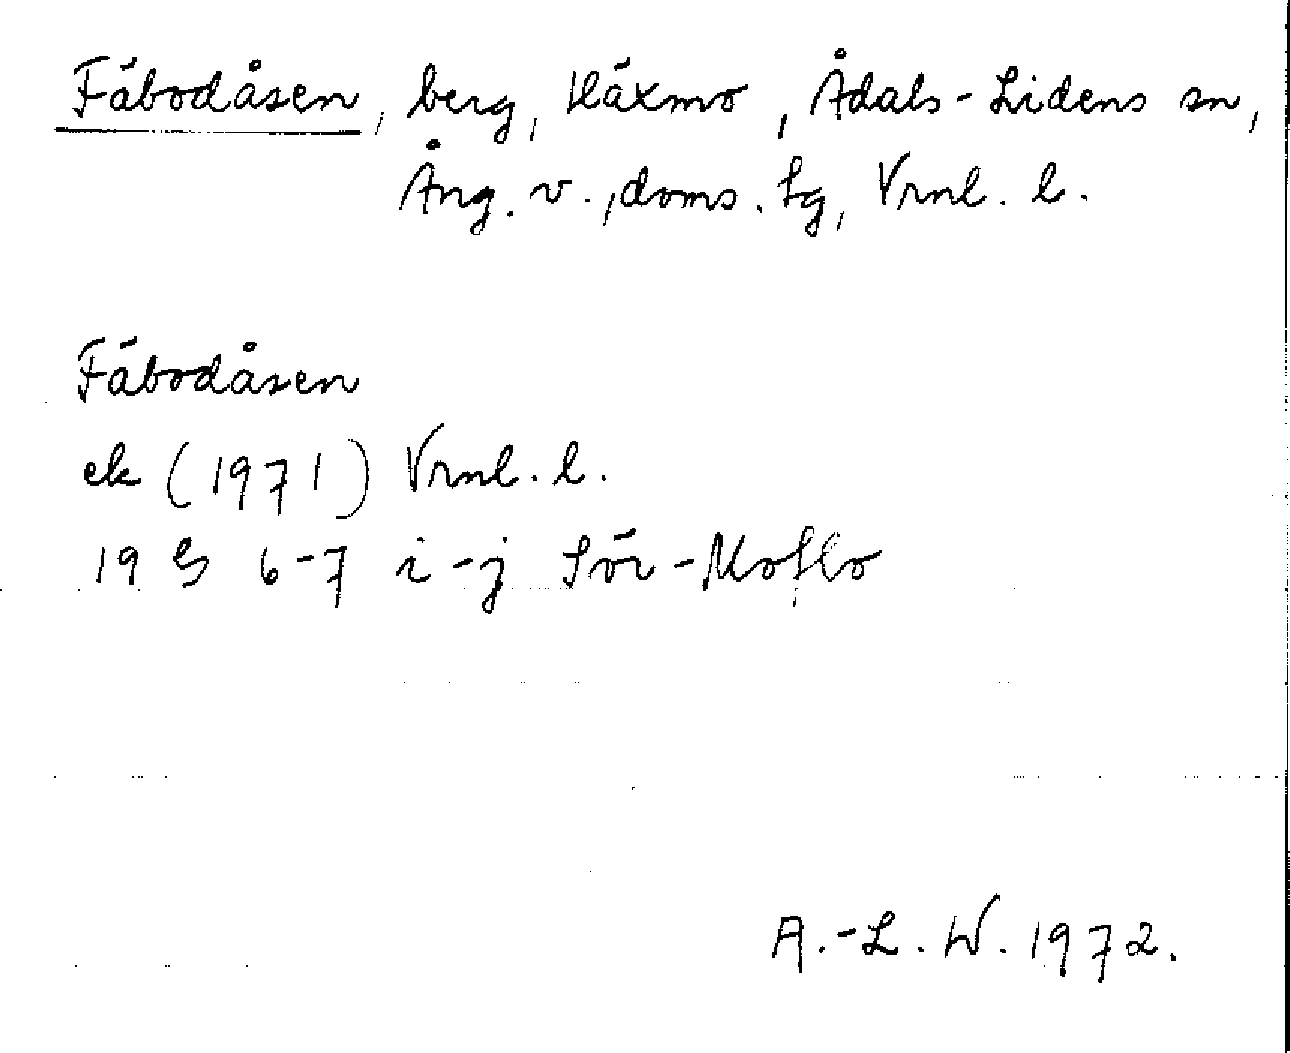 Fäbodåsen, berg, Häxmo, Ådals-Lidens sn,
Ång. v., doms. sg, Vrnl. l.
Fäbodåsen
ek (1971) Vrnl. l.
19 G 6-7 i-j Sör-Moflo
A.-L. W. 1972.